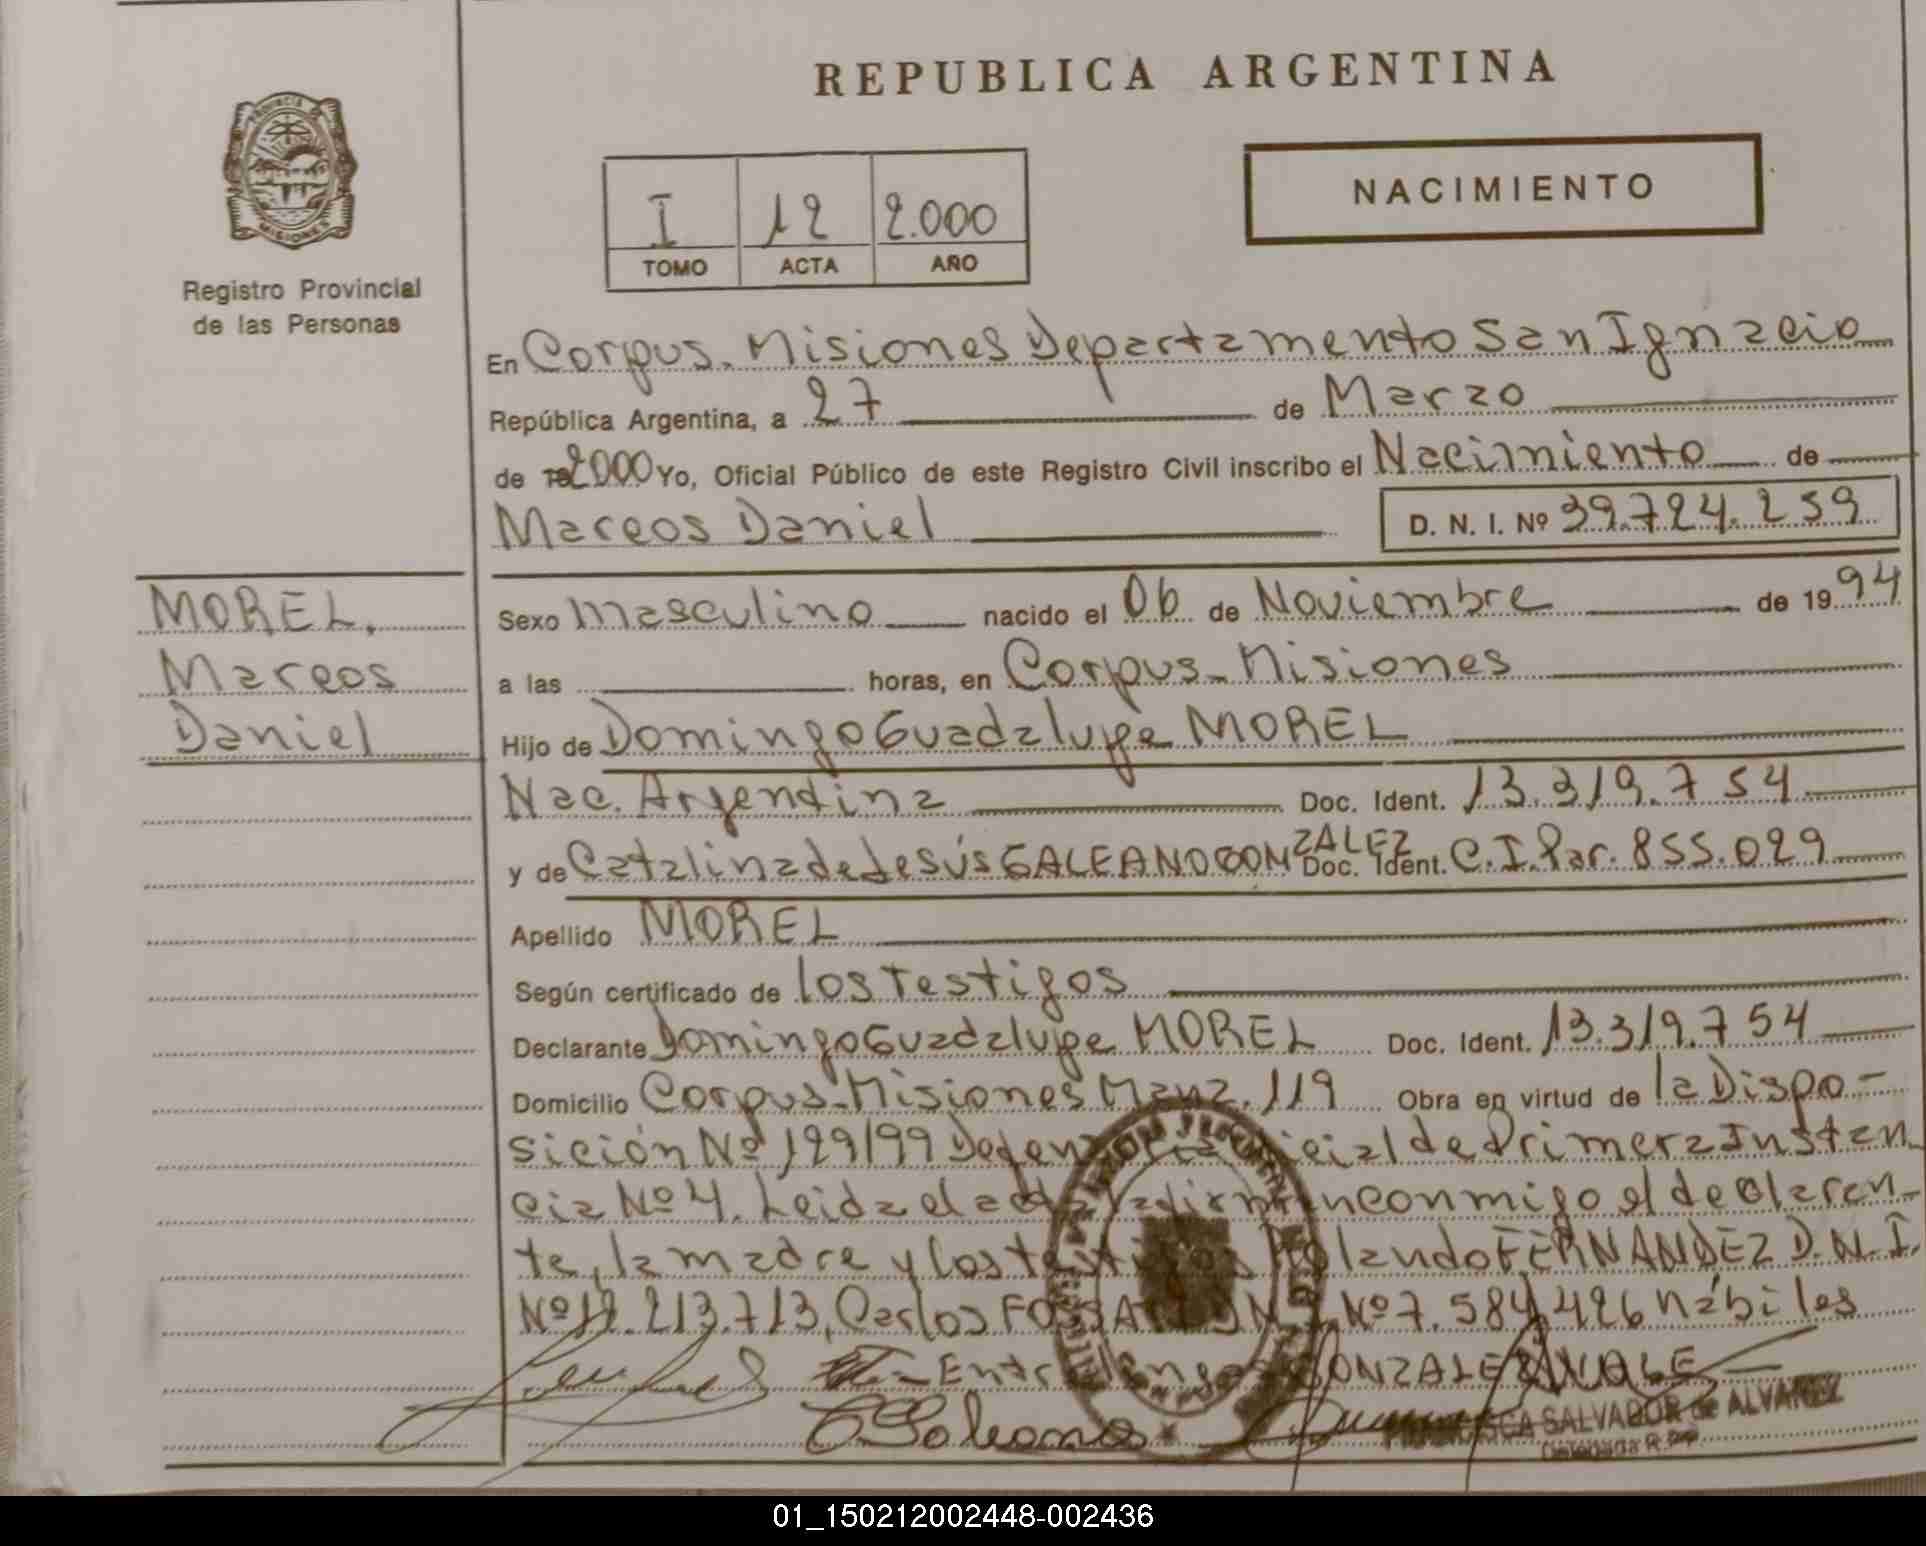 REPUBLICA ARGENTINA
PROVINCIA
MISIONES
Registro Provincial
de las Personas
I 12 2.000
TOMO ACTA AÑO
NACIMIENTO
En Corpus. Misiones Departamento San Ignacio
República Argentina, a 27 de Marzo
de 2000 Yo, Oficial Público de este Registro Civil inscribo el Nacimiento de
Marcos Daniel D. N. I. Nº 39.724.259
MOREL,
Marcos
Daniel
Sexo Masculino nacido el 06 de Noviembre de 1994
a las horas, en Corpus. Misiones
Hijo de Domingo Guadalupe MOREL
Nac. Argentina Doc. Ident. 13.319.754
y de Catalina de Jesús GALEANO GONZALEZ Doc. Ident. C.I. Par. 855.029
Apellido MOREL
Según certificado de los Testigos
Declarante Domingo Guadalupe MOREL Doc. Ident. 13.319.754
Domicilio Corpus. Misiones Manz. 119 Obra en virtud de la Dispo-
sición Nº 129/99 Defensoría Oficial de Primera Instan-
cia Nº 4. Leida el acta la firman conmigo el declaran-
te, la madre y los testigos Rolando FERNANDEZ D.N.I.
Nº 213.713, Carlos FOSSATI D.N.I. Nº 7.584.426 hábiles
GONZALEZ VALE
SALVADOR de ALVAREZ
01_150212002448-002436